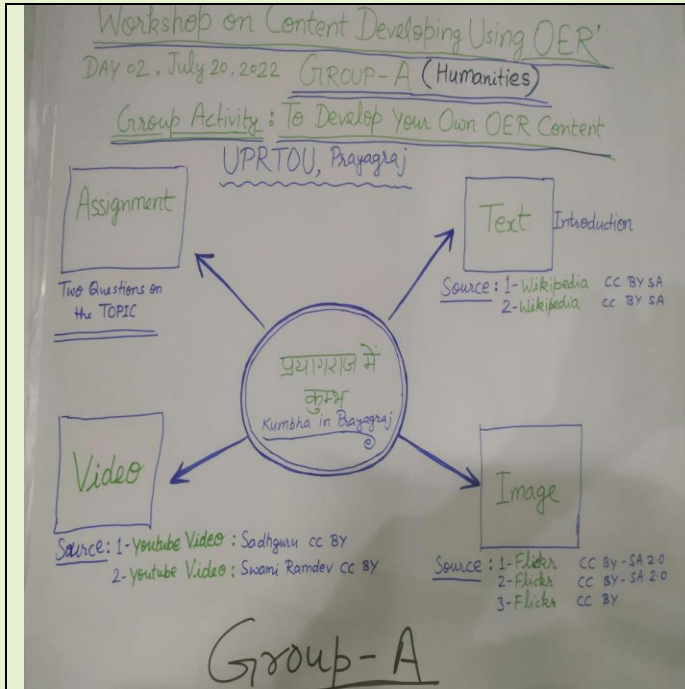 Workshop on Content Developing Using OER'
DAY 02, July 20, 2022 GROUP-A (Humanities)
Group Activity: To Develop Your Own OER Content
UPRTOU, Prayagraj
Assignment
Two Questions on
the TOPIC
Text Introduction
Source: 1-Wikipedia CC BY SA
2-Wikipedia CC BY SA
प्रयागराज में
कुम्भ
Kumbha in Prayagraj
Video
Source: 1-Youtube Video: Sadhguru CC BY
2-Youtube Video: Swami Ramdev CC BY
Image
Source: 1-Flickr CC BY-SA 2.0
2-Flickr CC BY-SA 2.0
3-Flickr CC BY
Group-A